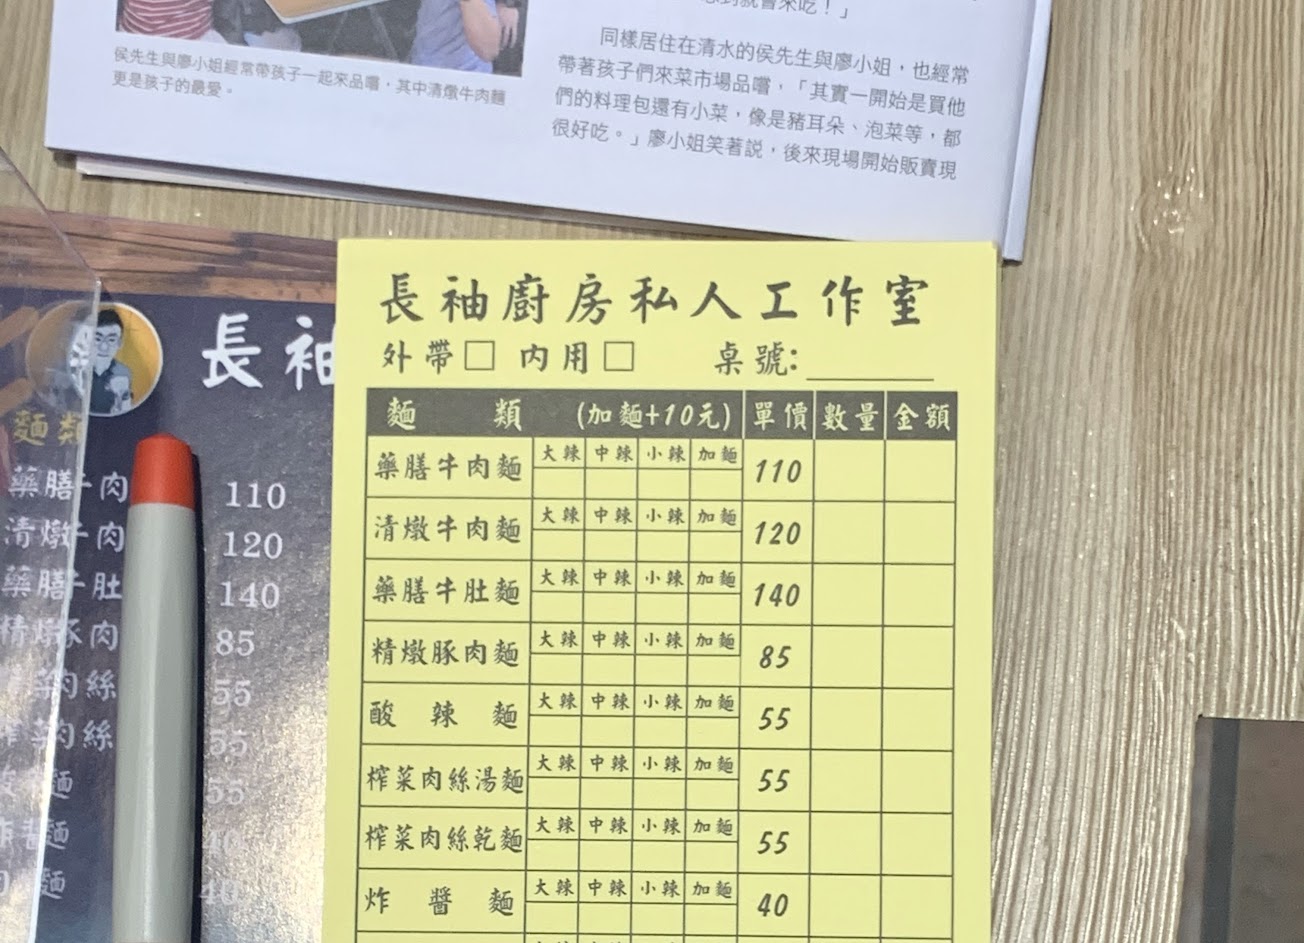 侯先生與廖小姐經常帶孩子一起來品嚐，其中清燉牛肉麵
更是孩子的最愛。
就會來吃！」
同樣居住在清水的侯先生與廖小姐，也經常
帶著孩子們來菜市場品嚐，「其實一開始是買他
們的料理包還有小菜，像是豬耳朵、泡菜等，都
很好吃。」廖小姐笑著說，後來現場開始販賣現
長袖
麵類
藥膳牛肉 110
清燉牛肉 120
藥膳牛肚 140
精燉豚肉 85
肉絲 55
肉絲 55
麵 55
炸醬麵 40
麵 40
長袖廚房私人工作室
外帶□ 內用□ 桌號:
麵類 (加麵+10元) 單價 數量 金額
藥膳牛肉麵 大辣 中辣 小辣 加麵 110
清燉牛肉麵 大辣 中辣 小辣 加麵 120
藥膳牛肚麵 大辣 中辣 小辣 加麵 140
精燉豚肉麵 大辣 中辣 小辣 加麵 85
酸辣麵 大辣 中辣 小辣 加麵 55
榨菜肉絲湯麵 大辣 中辣 小辣 加麵 55
榨菜肉絲乾麵 大辣 中辣 小辣 加麵 55
炸醬麵 大辣 中辣 小辣 加麵 40